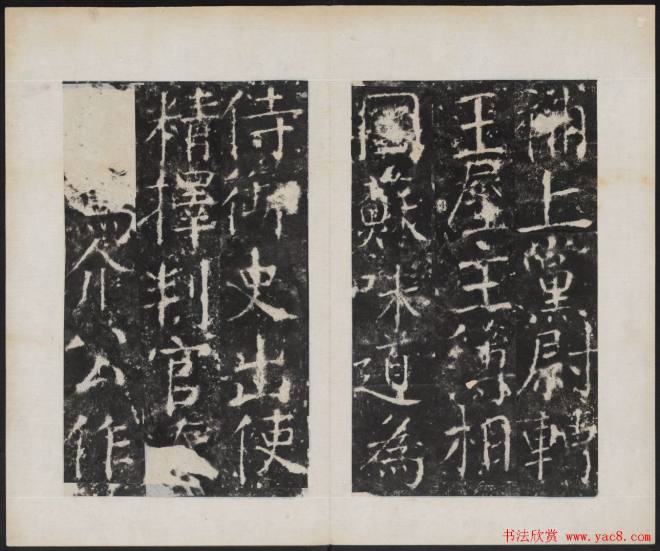 補上黨尉轉
王屋主簿相
國蘇味道為
侍御史出使
精擇判官
界公作
书法欣赏 www.yac8.com